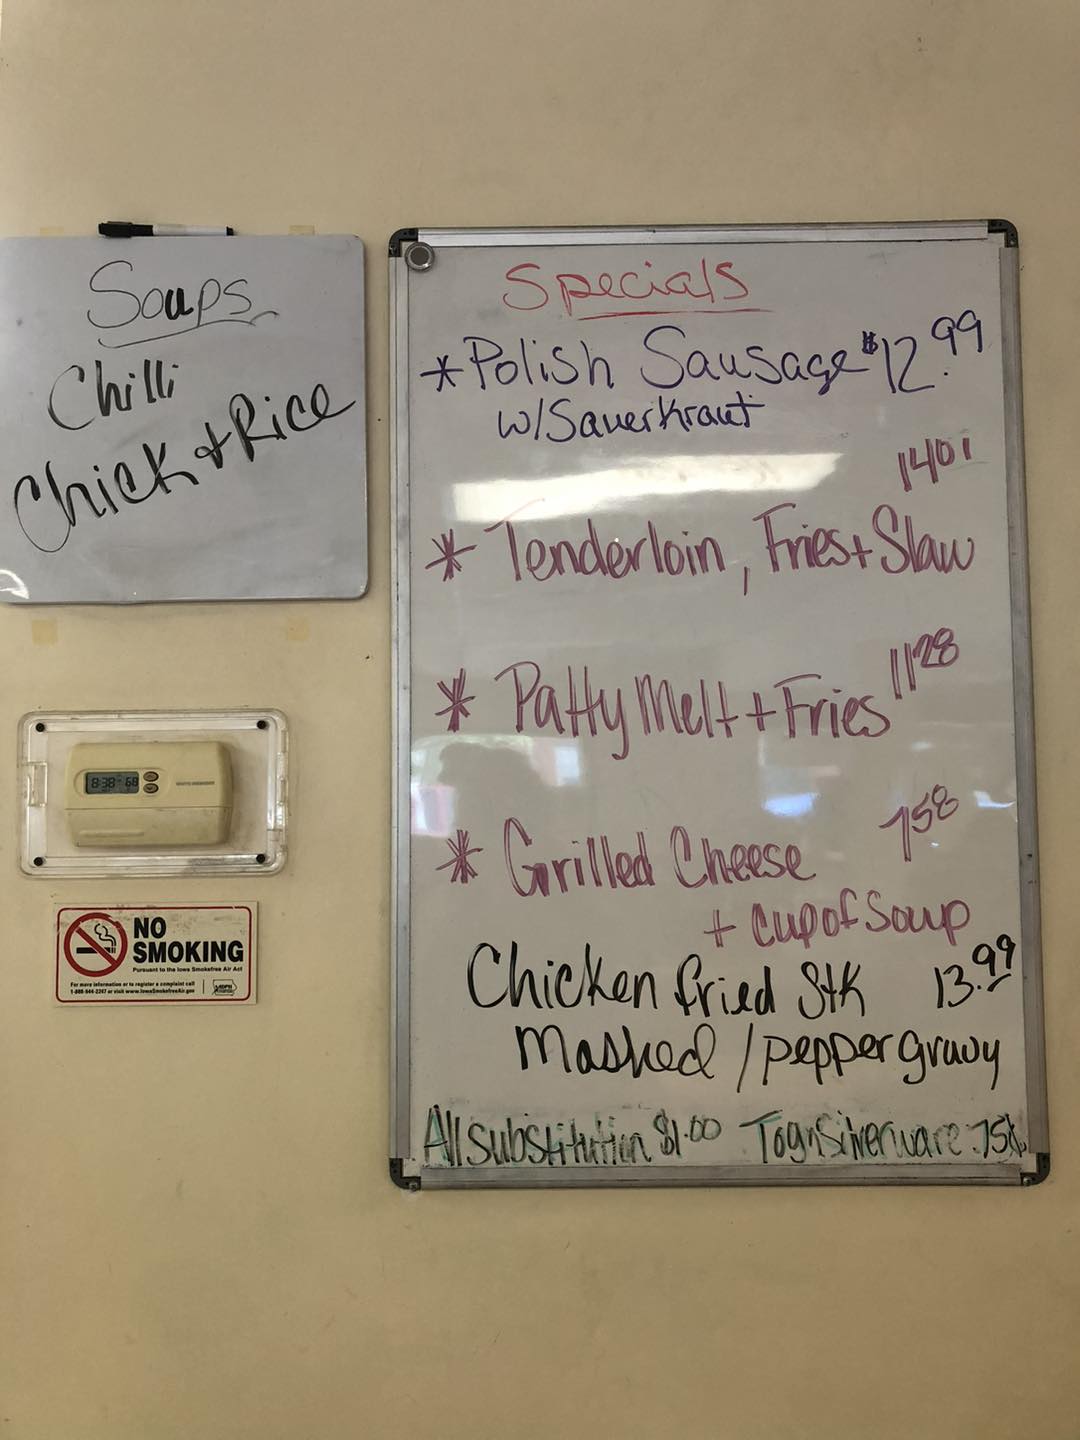 Soups
Chilli
Chick + Rice
Specials
* Polish Sausage $12.99
w/Sauerkraut
1401
* Tenderloin, Fries + Slaw
* Patty Melt + Fries 1128
* Grilled Cheese 758
+ cup of Soup
Chicken fried Stk 13.99
Mashed / pepper gravy
All substitution $1.00 Togn Silverware .75¢
8:38 68
NO
SMOKING
Pursuant to the Iowa Smokefree Air Act
For more information or to register a complaint call
1-888-944-2247 or visit www.IowaSmokefreeAir.gov